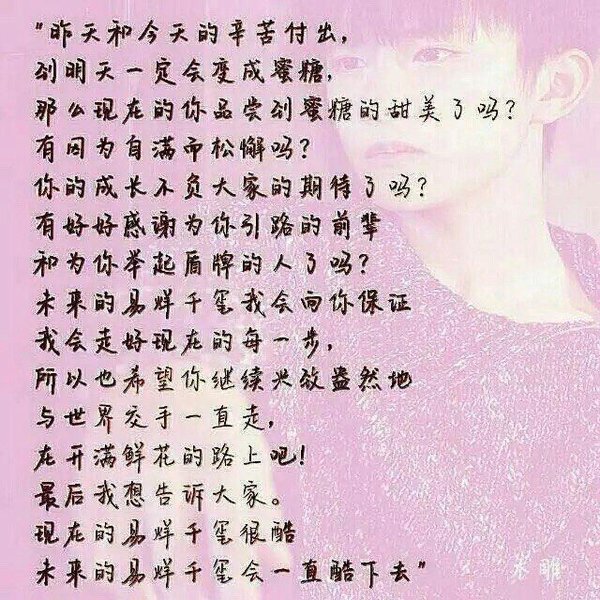 "昨天和今天的辛苦付出，
到明天一定会变成蜜糖，
那么现在的你品尝到蜜糖的甜美了吗？
有因为自满而松懈吗？
你的成长不负大家的期待了吗？
有好好感谢为你引路的前辈
和为你举起盾牌的人了吗？
未来的易烊千玺我会向你保证
我会走好现在的每一步，
所以也希望你继续兴致盎然地
与世界交手一直走，
在开满鲜花的路上吧！
最后我想告诉大家。
现在的易烊千玺很酷
未来的易烊千玺会一直酷下去"